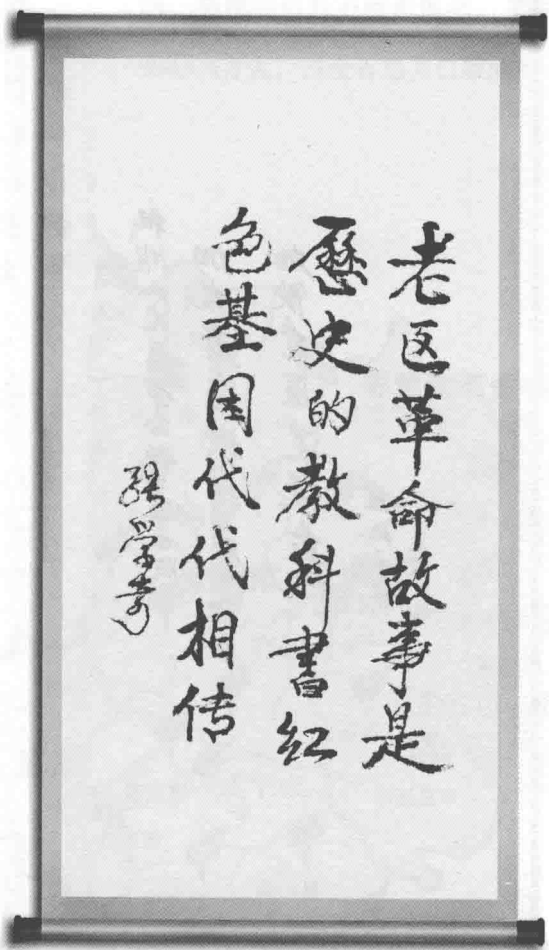 老区革命故事是
歷史的教科書红
色基因代代相传
张学芳